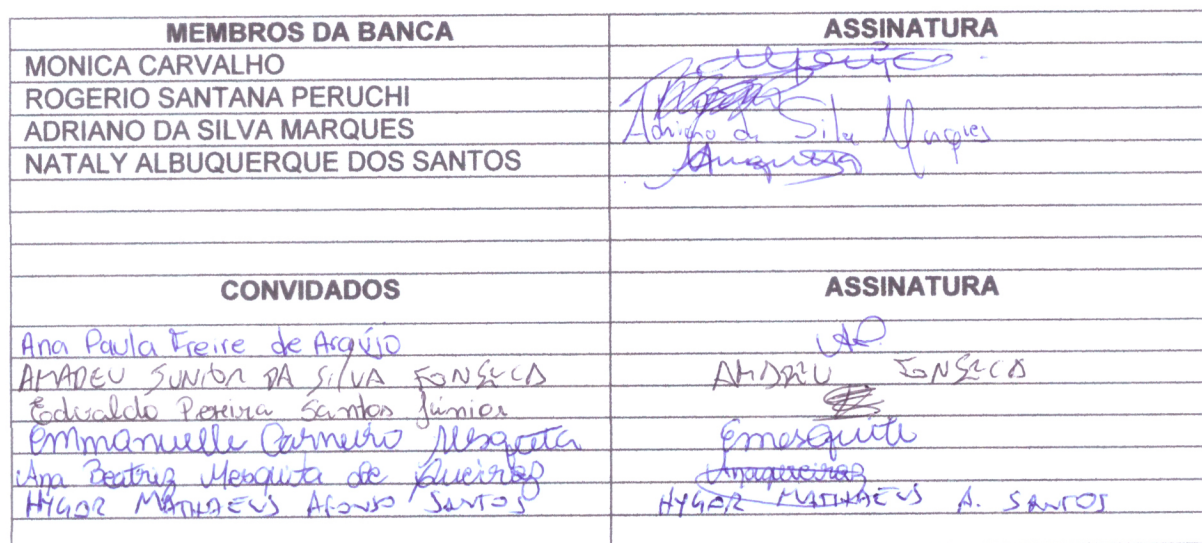 MEMBROS DA BANCA ASSINATURA
MONICA CARVALHO
ROGERIO SANTANA PERUCHI
ADRIANO DA SILVA MARQUES Adriano da Silva Marques
NATALY ALBUQUERQUE DOS SANTOS
CONVIDADOS ASSINATURA
Ana Paula Freire de Araújo
AMADEU JUNIOR DA SILVA FONSECA AMADEU FONSECA
Edvaldo Pereira Santos Júnior
Emmanuelle Carneiro Mesquita Emesquita
Ana Beatriz Mesquita de Queiroz Anaqueiroz
HYGOR MATHAEUS AFONSO SANTOS HYGOR MATHAEUS A. SANTOS